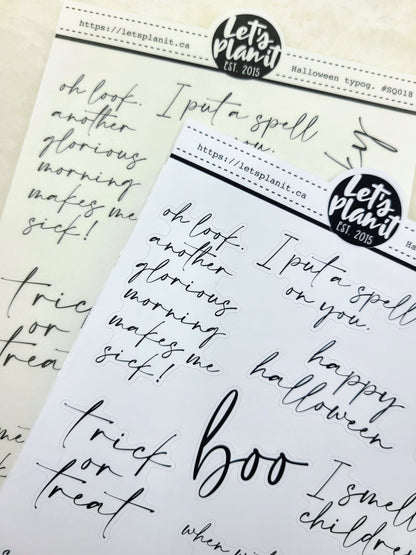 https://letsplanit.ca
Let's
Planit
EST. 2015
Halloween typog. #SQ018
oh look.
another
glorious
morning
makes me
sick!
I put a spell
trick
or
treat
https://letsplanit.ca
Let's
Planit
EST. 2015
oh look.
another
glorious
morning
makes me
sick!
I put a spell
on you.
happy
halloween
trick
or
treat
boo
I smell
children